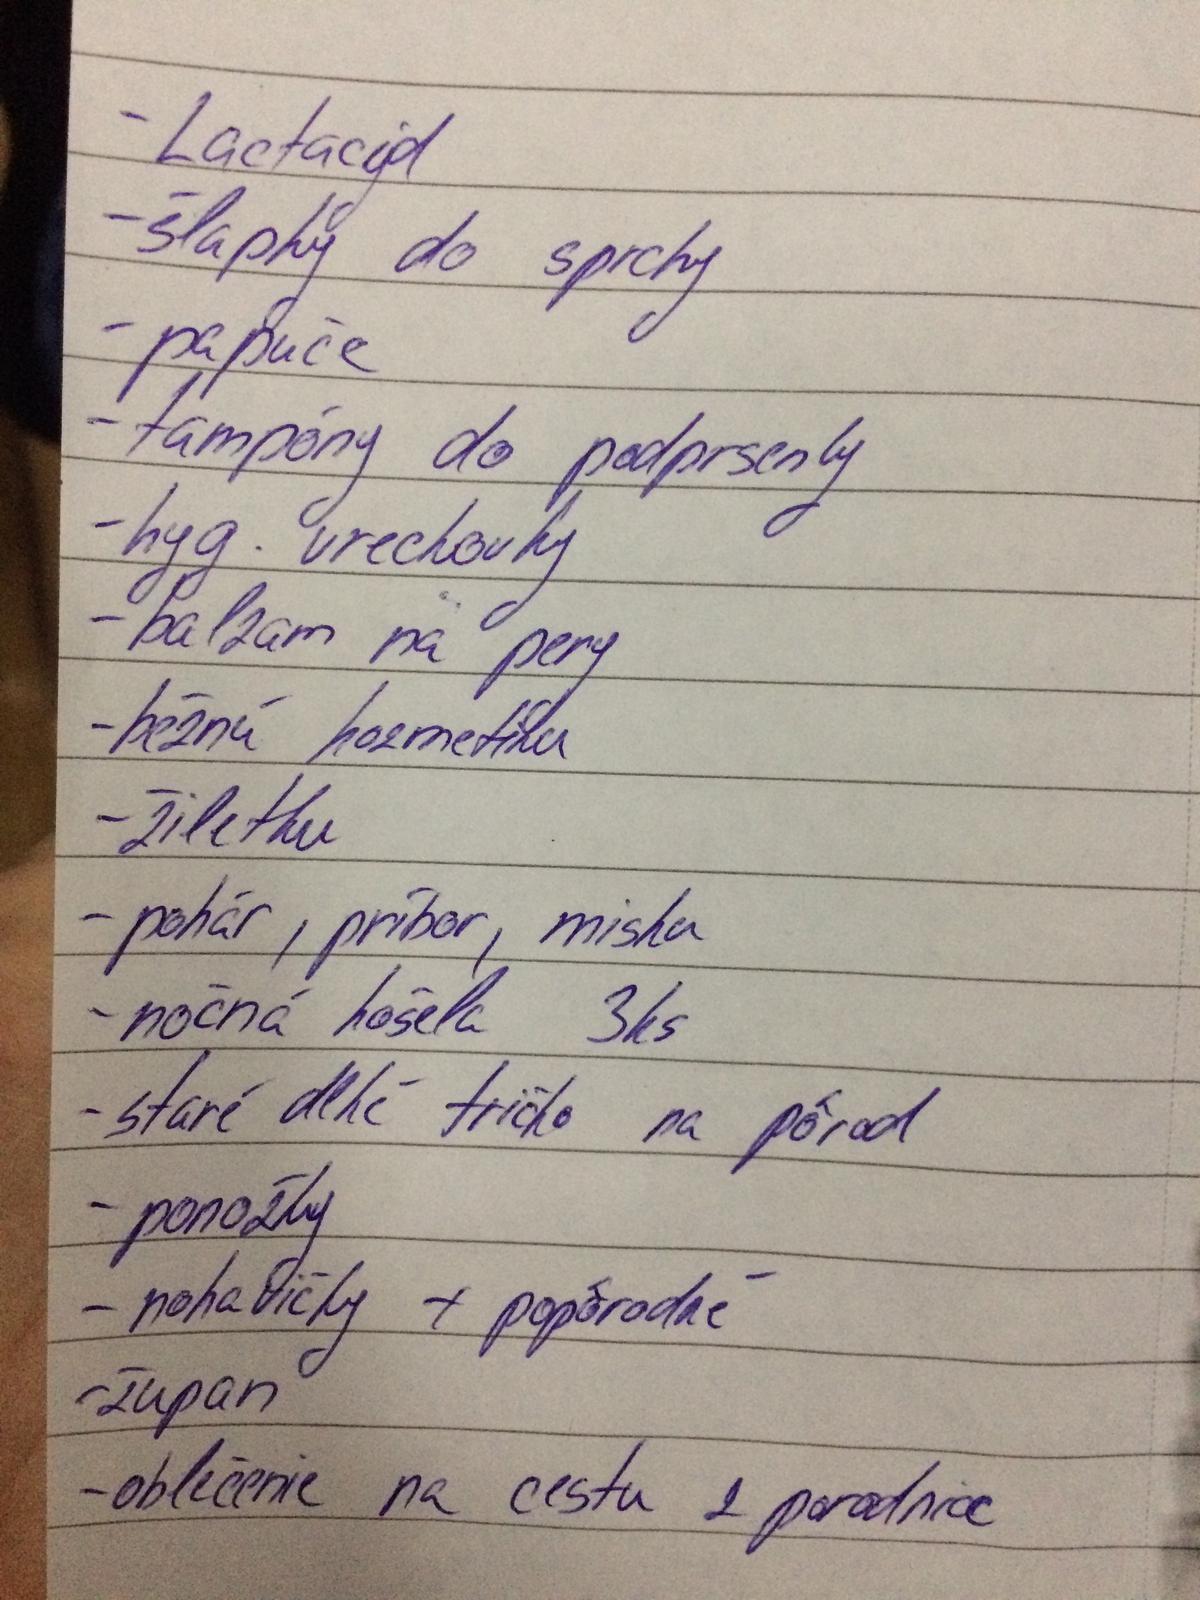 - Lactacyd
- šlapky do sprchy
- papuče
- tampóny do podprsenky
- hyg. vrechovky
- balzam na pery
- bežnú kozmetiku
- žiletku
- pohár, príbor, misku
- nočná košela 3ks
- staré dlhé tričko na pôrod
- ponožky
- nohavičky + popôrodné
- župan
- oblečenie na cestu z porodnice